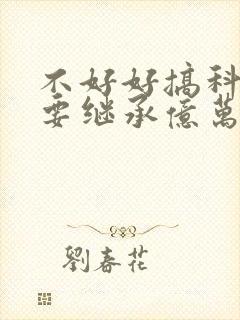 不好好搞科
要继承億萬
劉春花